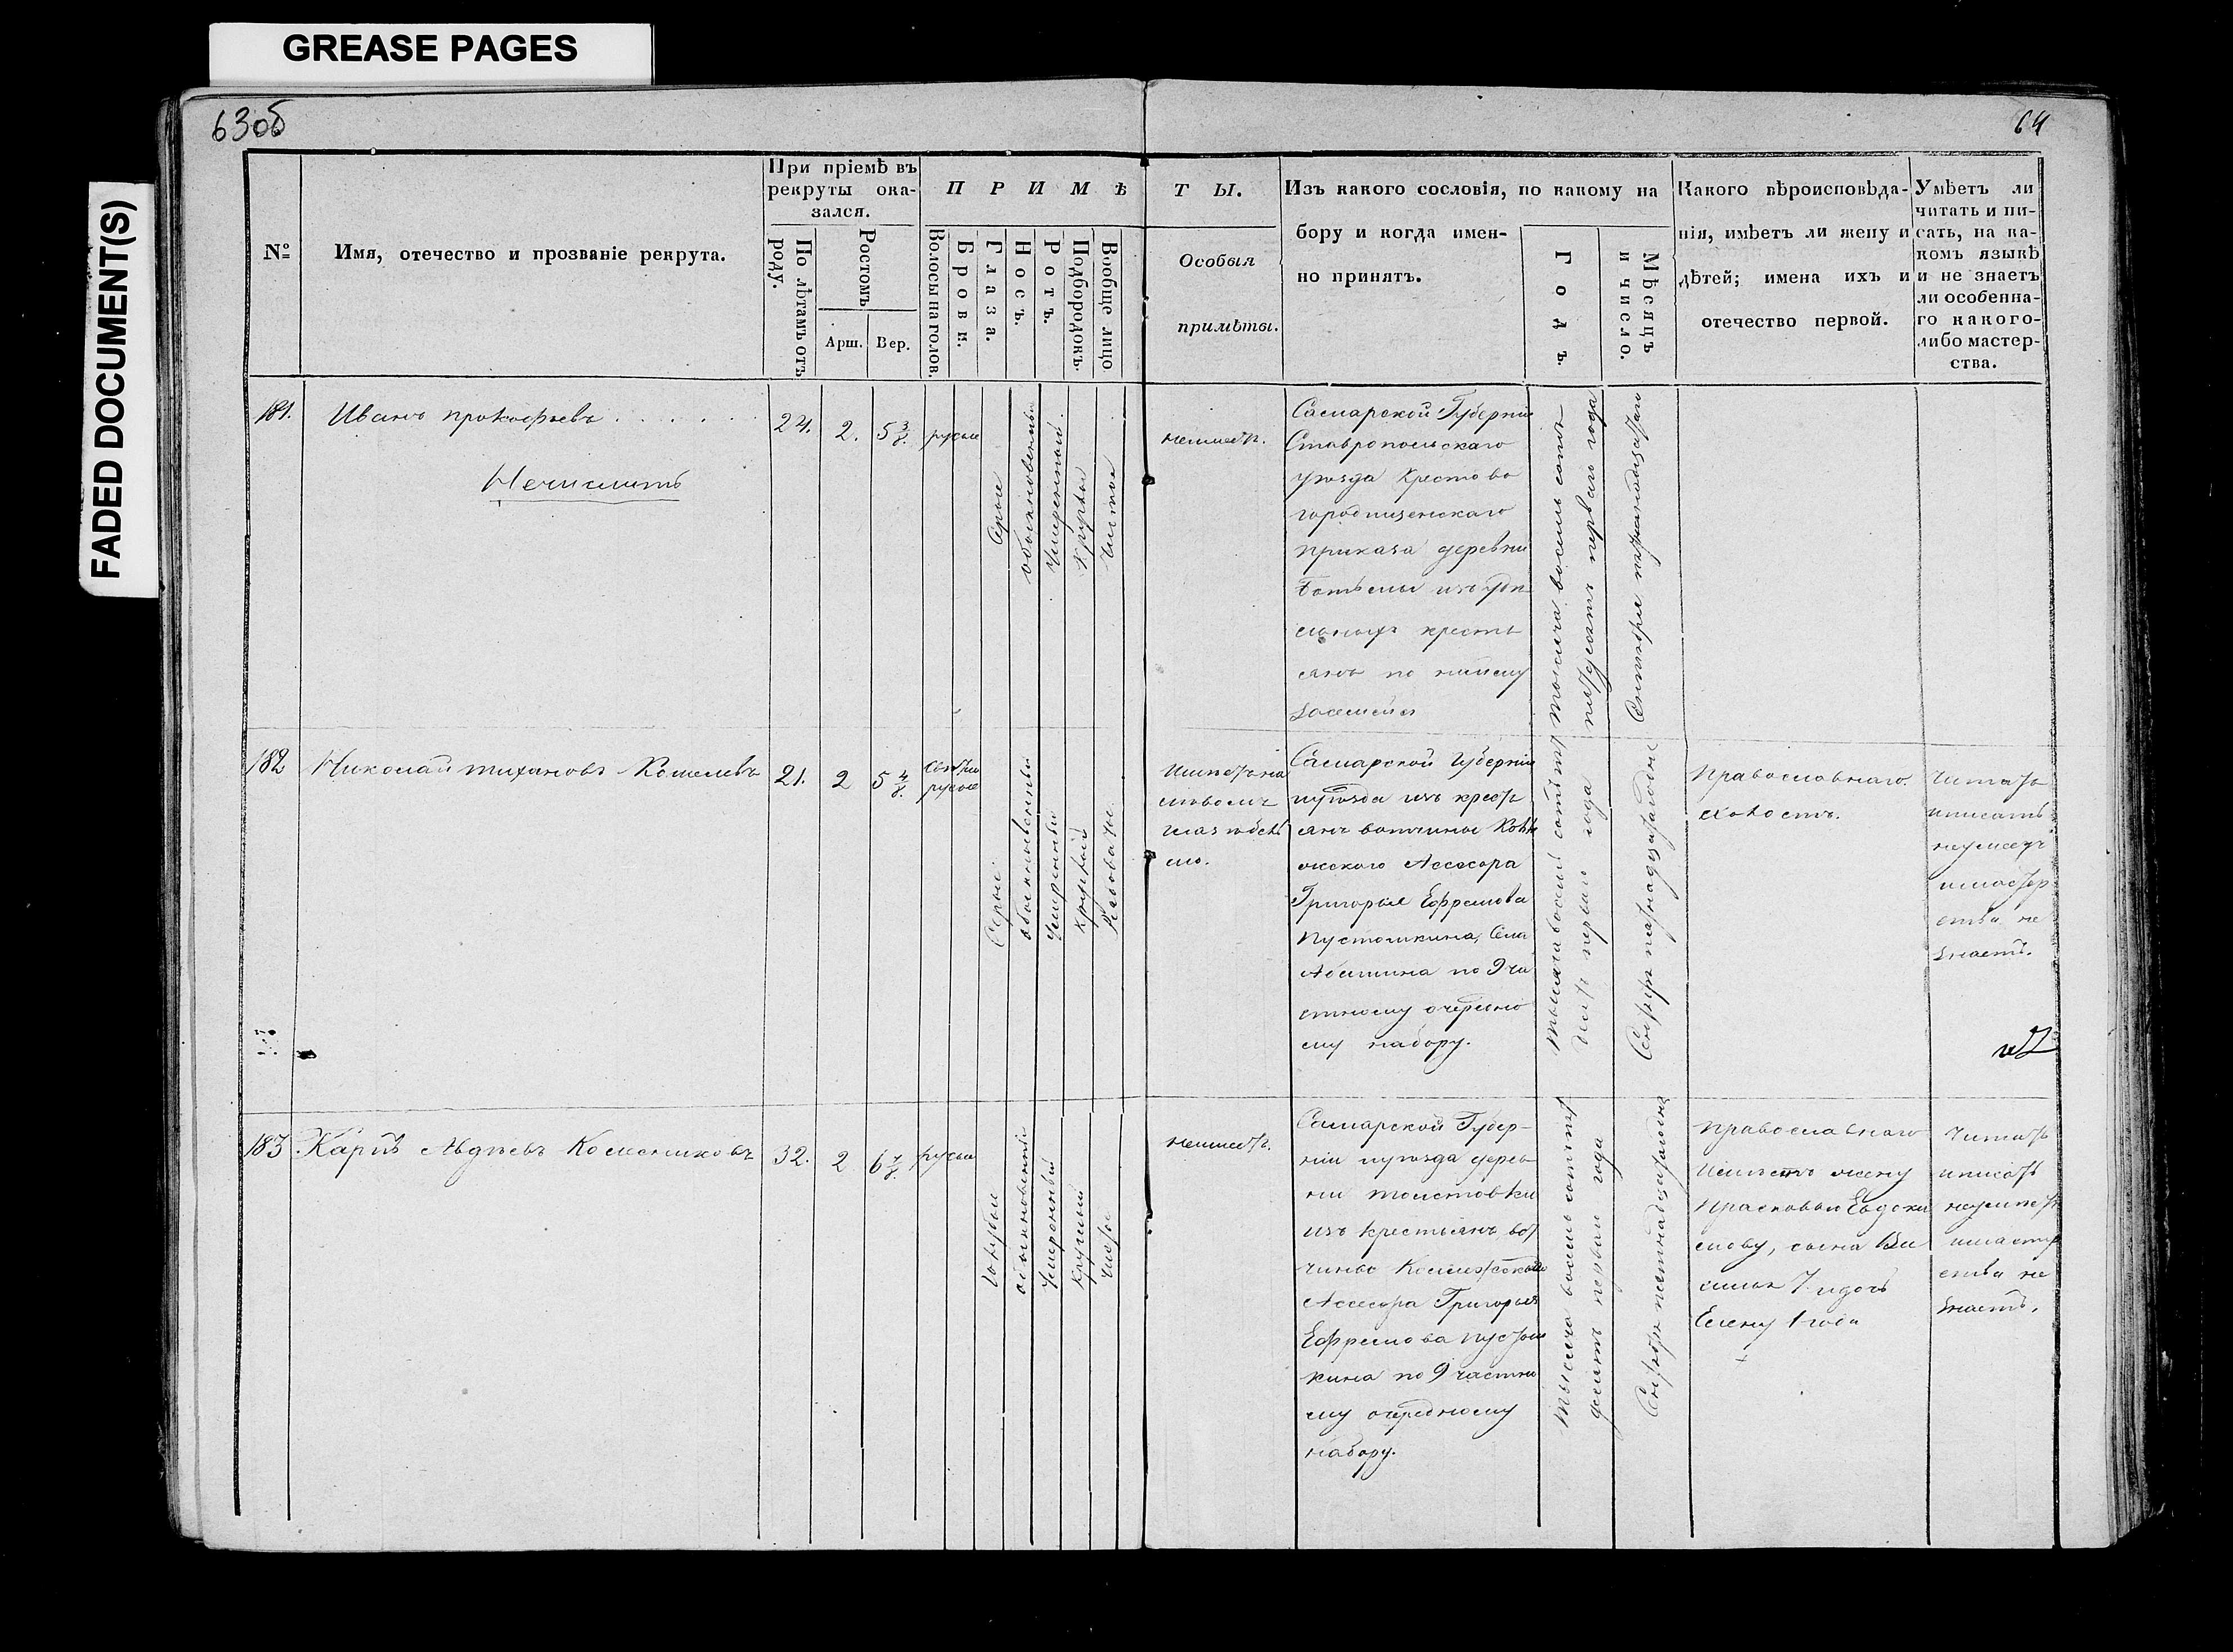 GREASE PAGES
FADED DOCUMENT(S)
63об
64
№
Имя, отечество и прозваніе рекрута.
При пріемѣ въ
рекруты ока-
зался.
По лѣтамъ отъ
роду.
Ростомъ
Арш.
Вер.
ПРИМѢ
ТЫ.
Волосы на голов.
Брови.
Глаза.
Носъ.
Ротъ.
Подбородокъ.
Вообще лицо
Особыя
примѣты.
Изъ какого сословія, по какому на
бору и когда имен-
но принятъ.
Годъ.
Мѣсяцъ
и число.
Какого вѣроисповѣда-
нія, имѣетъ ли жену и
дѣтей; имена ихъ и
отечество первой.
Умѣетъ ли
читать и пи-
сать, на ка-
комъ языкѣ
и не знаетъ
ли особенна-
го какого-
либо мастер-
ства.
181.
Иванъ Прокофьевъ
24.
2.
5 3/8.
русые
Сѣрые
обыкновенный
Умеренный
Круглой
Чистое
неимеет.
Самарской Губерніи
Ставропольскаго
уѣзда Кресто во
городищенскаго
приказа деревни
крестъ
янъ по
тысяча восемь сотъ
пятьдесятъ перваго года
Сентября пятнадцатаго
182
Николай Тихановъ Кошелевъ
21.
2
5 4/8.
Светло
русые
Серые
обыкновенный
Умеренный
Круглый
Самарской Губерніи
и уѣзда изъ крестъ
янъ вотчины Колѣ
жскаго Асесора
Григорья Ефремова
Пустошкина, Села
по 9 ча
стному очередно
му набору.
тысяча восемь сотъ пят
десят первый года
Православнаго.
холостъ.
Читать
и писать
неумеетъ
и мастер
ства не
знаетъ.
183.
Карпъ Авдѣевъ
32.
2
6 7/8.
русые
Голубые
обыкновенный
Умеренный
Круглый
Чистое
неимеетъ.
Самарской Губер-
ніи и уѣзда дерев
ни Толстовки
изъ крестьянъ вот
чины Коллежскаго
Асесора Григорья
Ефремова Пустош
кина по 9 частно
му очередному
набору.
тысяча восемь сотъ пят
десятъ первый года
Православнаго
имѣетъ жену
Прасковью Евдоки
мову, сына Ва
силья 7 и дочь
Елену 1 года
Читать
и писать
неумеетъ
и мастер
ства не
знаетъ.